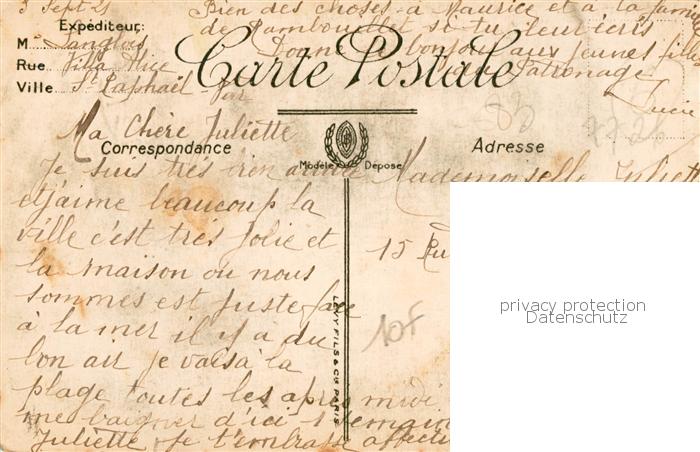 3 Sept 21
Bien des choses à Maurice et à la
de Rambouillet si tu leur écris
Donne bonjour aux jeunes
Patronage
Lucie
Expéditeur:
M Langlois
Rue Villa Alice
Ville St Raphaël Var
Carte Postale
83
Ma Chère Juliette
Correspondance
Modèle Déposé
Adresse
Je suis très bien
Mademoiselle
et j'aime beaucoup la
ville c'est très jolie et
15
la maison ou nous
sommes est juste face
à la mer il y a du
bon air je vais à la
plage toutes les après midi
me baigner d'ici 1
Juliette Je t'embrasse
LEVY FILS & CIE PARIS
10F
privacy protection
Datenschutz